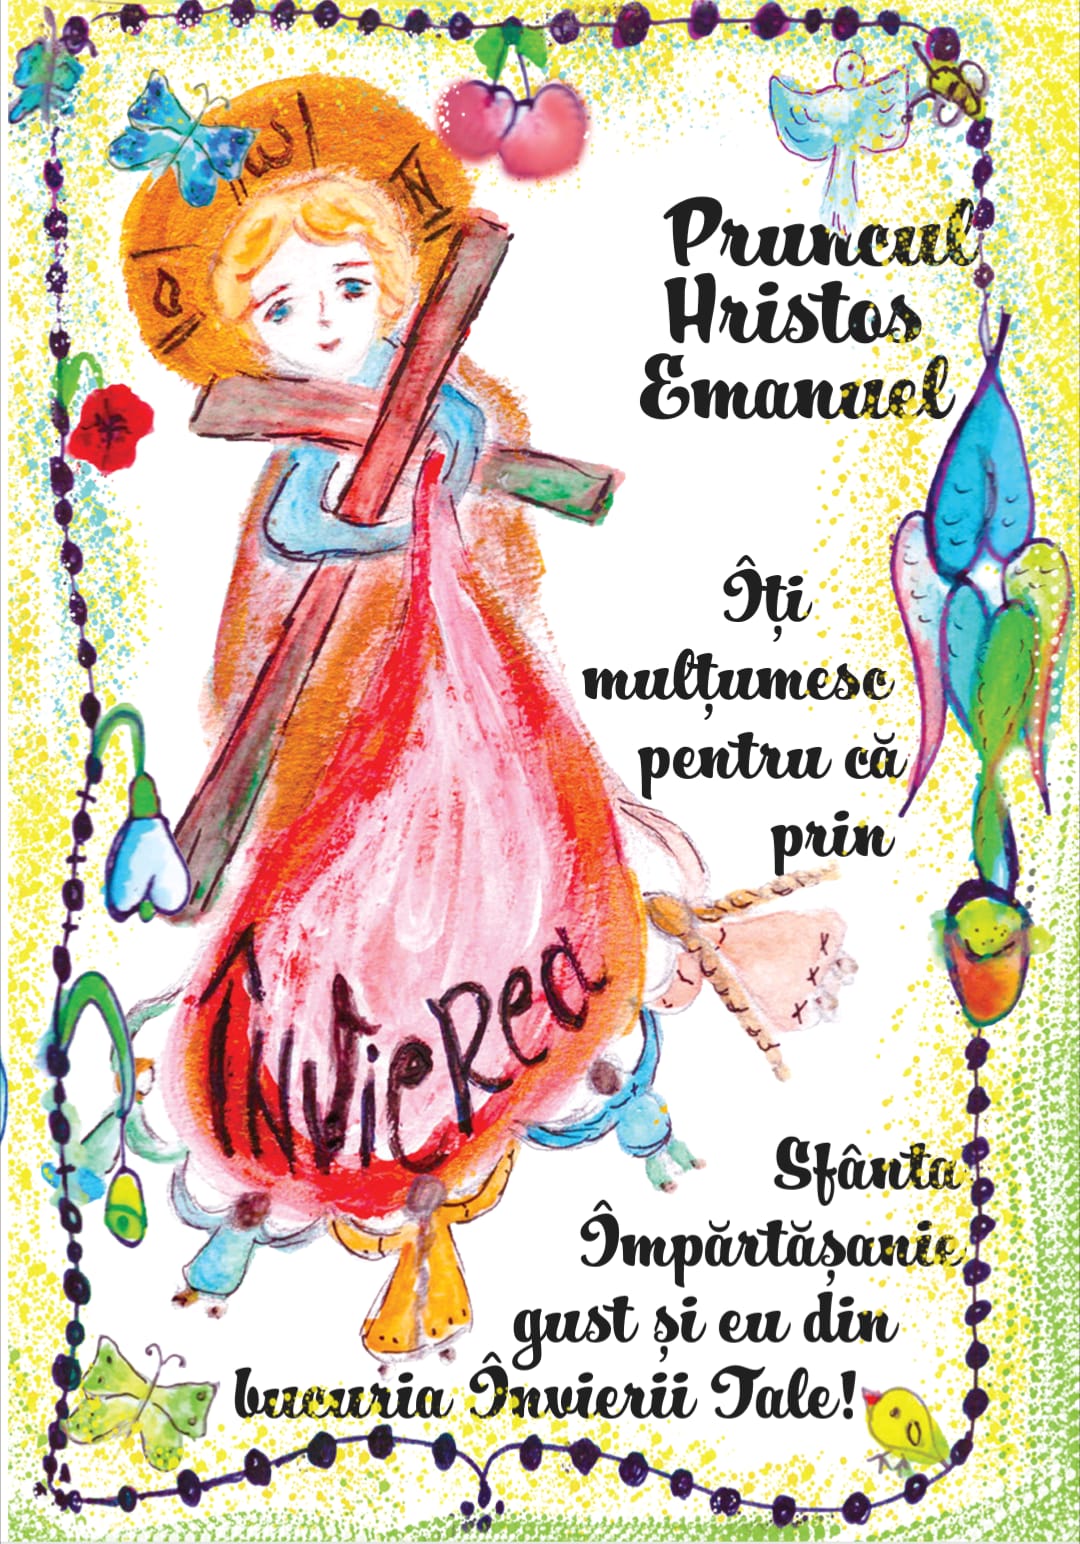 Ο Ω Ν
Pruncul
Hristos
Emanuel
Îți
mulțumesc
pentru că
prin
Învierea
Sfânta
Împărtășanie
gust și eu din
bucuria Învierii Tale!